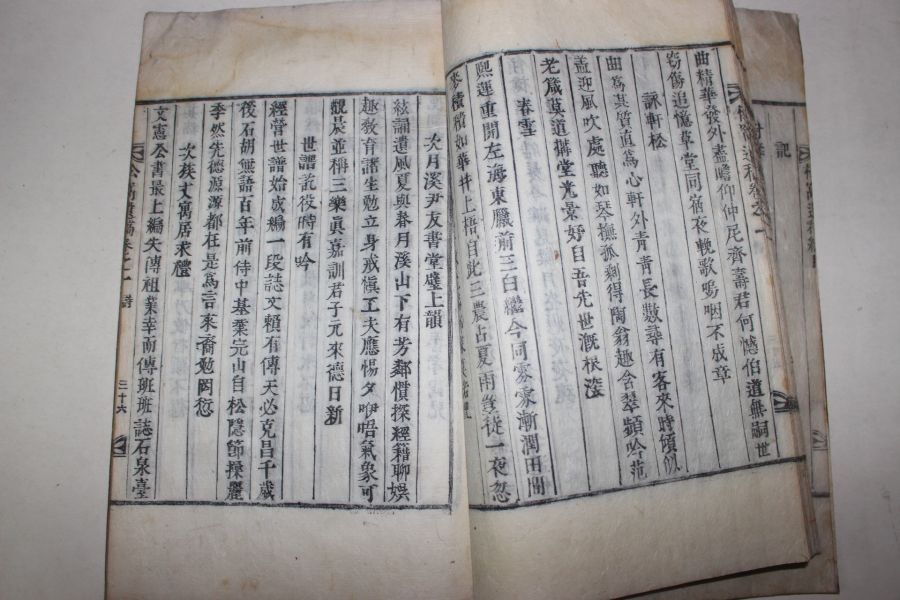 記
曲精華發外盡瞻仰仲尼齊壽君何憾伯道無嗣世
窃傷追憶草堂同宿夜輓歌嗚咽不成章
詠軒松
曲爲其質直爲心軒外青青長數尋有客來時傾似
盖迎風吹處聽如琴撫孤剩得陶翁趣含翠頻吟范
老箴莫道搆堂光景好自吾先世漑根深
春雪
熙運重開左海東臘前三白繼今同家家漸潤田間
麥積積如華井上梧自此三農占夏雨
徒一夜忽
次月溪尹友書堂壁上韻
絃誦遺風夏與春月溪山下有芳鄰慣探經籍聊娛
趣敎育諸生勉立身戒愼工夫應惕夕咿唔氣象可
觀晨並稱三樂眞嘉訓君子元來德日新
世譜訖役時有吟
經營世譜始成編一段誌文賴有傳天必克昌千歲
後石胡無語百年前侍中基業完山自松隱節操麗
季然先德源源都在是爲言來裔勉罔愆
次族丈寓居求禮
文憲公書最上編失傳祖業幸而傳班班誌石泉臺
詩
三十六